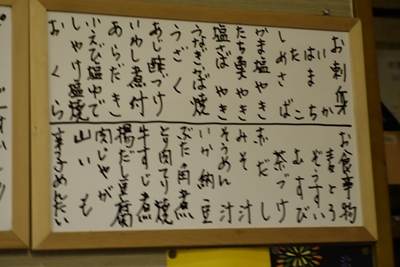 お刺身
いか
はまち
たこ
しめさば
かま塩やき
たち魚やき
塩さばやき
うなぎかば焼
うざく
あじ酢づけ
いわし煮付
あらだき
小えび塩ゆで
しゃけ塩焼
おくら
お食事物
麦とろ
ぞうすい
むすび
茶づけ
赤だし
みそ汁
そうめん汁
いか納豆
ぶた角煮
とり肉てり焼
牛すじ煮
揚だし豆腐
肉じゃが
山いも
辛子めんたい